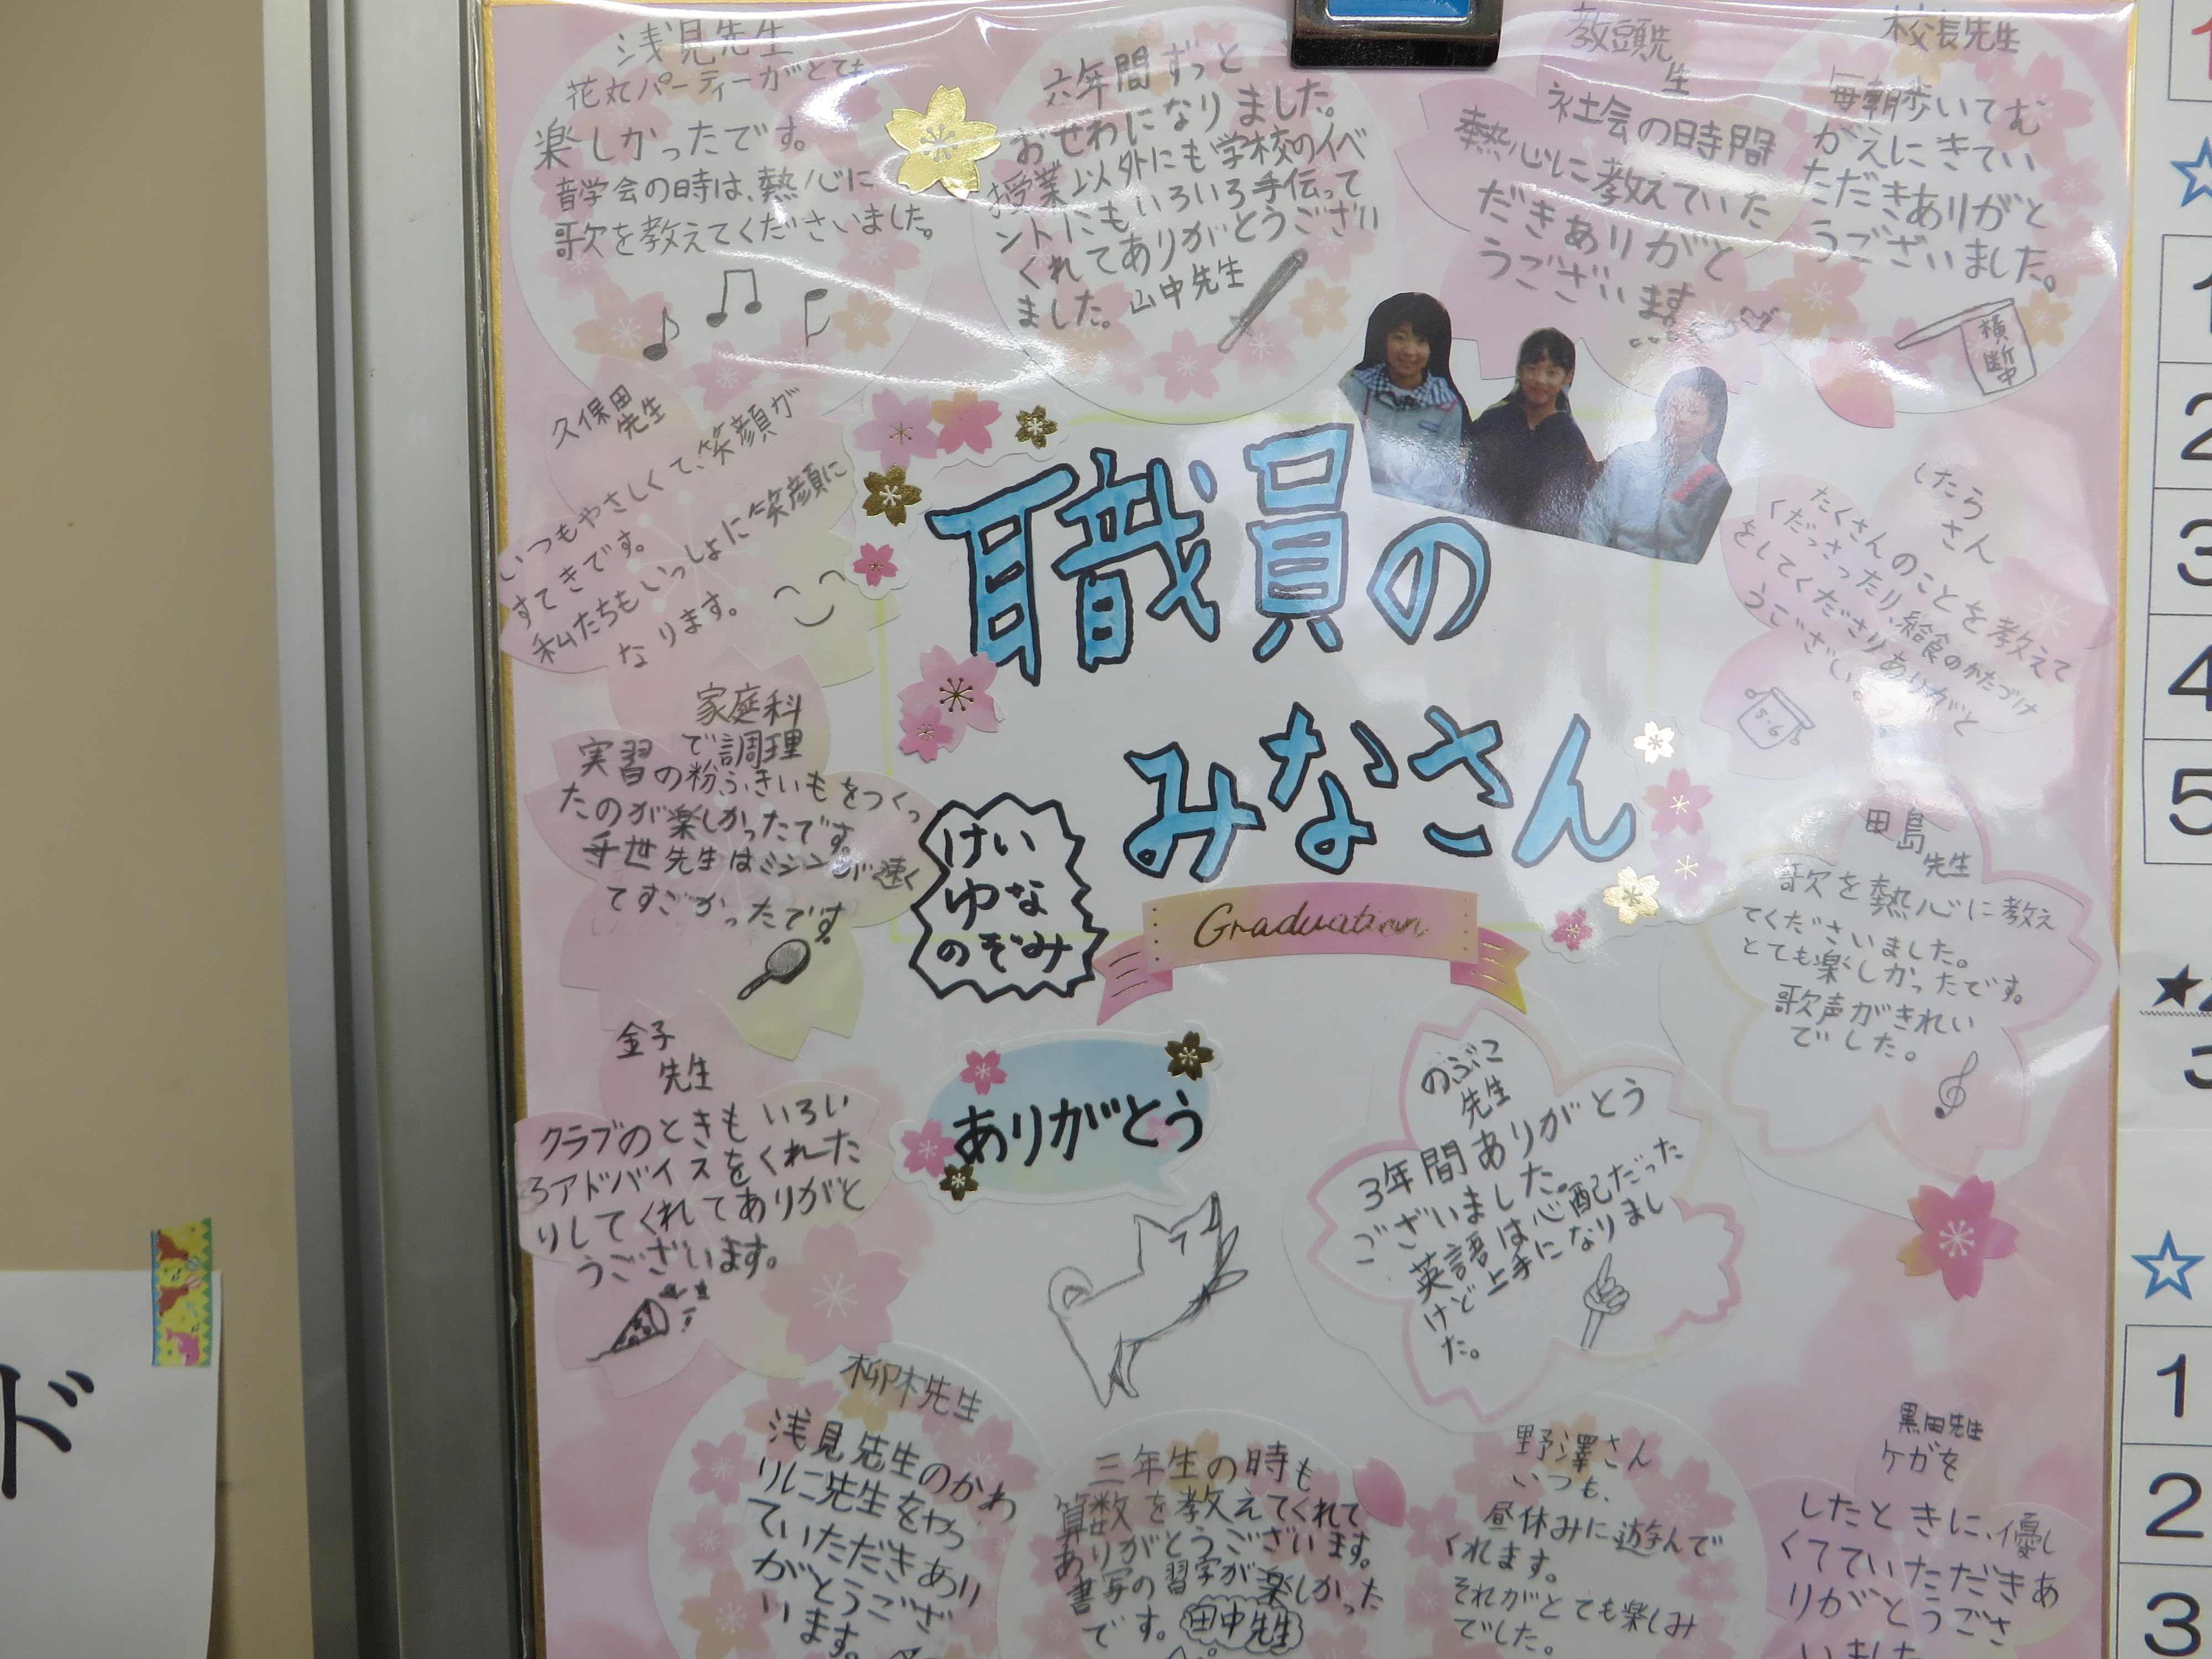 浅見先生
花丸パーティーがとても
楽しかったです。
音学会の時は、熱心に
歌を教えてくださいました。
六年間ずっと
おせわになりました。
授業以外にも学校のイベ
ントにもいろいろ手伝って
くれてありがとうござい
ました。山中先生
教頭先
生
社会の時間
熱心に教えていた
だきありがと
うございます。
校長先生
毎朝歩いてむ
がえにきてい
ただきありがと
うございました。
横断中
久保田
先生
いつもやさしくて、笑顔が
すてきです。
私たちもいっしょに笑顔に
なります。
職員の
みなさん
したら
さん
たくさんのことを教えて
くだっさったり、給食のかたづけ
をしてくださりありがと
うございます
5・6
家庭科
で調理
実習の粉ふきいもをつくっ
たのが楽しかったです。
先生はミシンが速く
てすごかったです。
けい
ゆな
のぞみ
Graduation
田島
先生
歌を熱心に教え
てくださいました。
とても楽しかったです。
歌声がきれい
でした。
金子
先生
クラブのときもいろい
ろアドバイスをくれた
りしてくれてありがと
うございます。
ありがとう
のぶこ
先生
3年間ありがとう
ございました。
英語は心配だった
けど上手になりまし
た。
柳木先生
浅見先生のかわ
りに先生をやっ
ていただきあり
がとうござ
います。
三年生の時も
算数を教えてくれて
ありがとうございます。
書写の習字が楽しかった
です。田中先生
野澤さん
いつも、
昼休みに遊んで
くれます。
それがとても楽しみ
でした。
黒田先生
ケガを
したときに、優し
くてていただきあ
りがとうござ
いました
ド
1
2
3
4
5
1
2
3